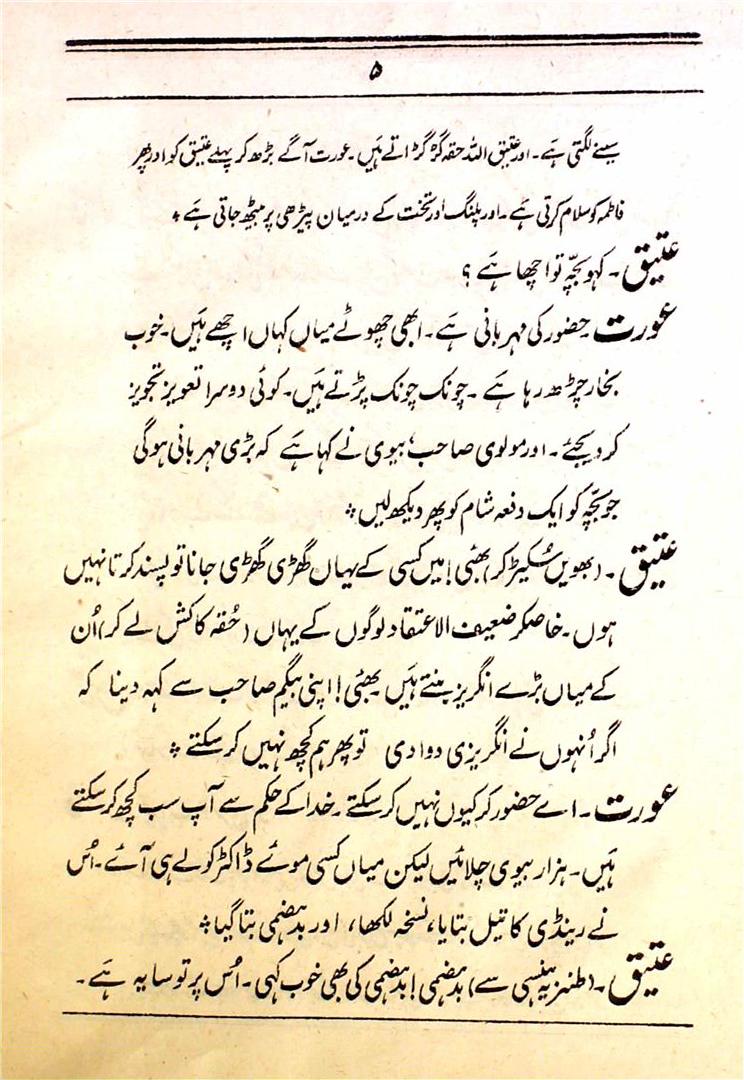 ۵
سینے لگتی ہے۔ اور عتیق اللہ حقہ گڑ گڑاتے ہیں۔ عورت آگے بڑھ کر پہلے عتیق کو اور پھر
فاطمہ کو سلام کرتی ہے۔ اور پلنگ اور تخت کے درمیان پیڑھی پر بیٹھ جاتی ہے ٭
عتیق۔ کہو بچّہ تو اچھا ہے؟
عورت حضور کی مہربانی ہے۔ ابھی چھوٹے میاں کہاں اچھے ہیں۔ خوب
بخار چڑھ رہا ہے۔ چونک چونک پڑتے ہیں۔ کوئی دوسرا تعویز تجویز
کر دیجئے۔ اور مولوی صاحب بیوی نے کہا ہے کہ بڑی مہربانی ہوگی
جو بچّہ کو ایک دفعہ شام کو پھر دیکھ لیں ٭
عتیق۔ (بھویں سُکیڑ کر) بھئی! میں کسی کے یہاں گھڑی گھڑی جانا تو پسند کرتا نہیں
ہوں۔ خاصکر ضعیف الاعتقاد لوگوں کے یہاں (حُقہ کا کش لے کر) اُن
کے میاں بڑے انگریز بنتے ہیں۔ بھئی! اپنی بیگم صاحب سے کہہ دینا کہ
اگر اُنہوں نے انگریزی دوا دی تو پھر ہم کچھ نہیں کر سکتے ٭
عورت۔ اے حضور کر کیوں نہیں کر سکتے۔ خدا کے حکم سے آپ سب کچھ کر سکتے
ہیں۔ ہزار بیوی چلائیں لیکن میاں کسی موئے ڈاکٹر کو لے ہی آئے۔ اُس
نے رینڈی کا تیل بتایا، نسخہ لکھا، اور بدہضمی بتا گیا ٭
عتیق۔ (طنزیہ ہنسی سے) بدہضمی! بدہضمی کی بھی خوب کہی۔ اُس پر تو سایہ ہے۔